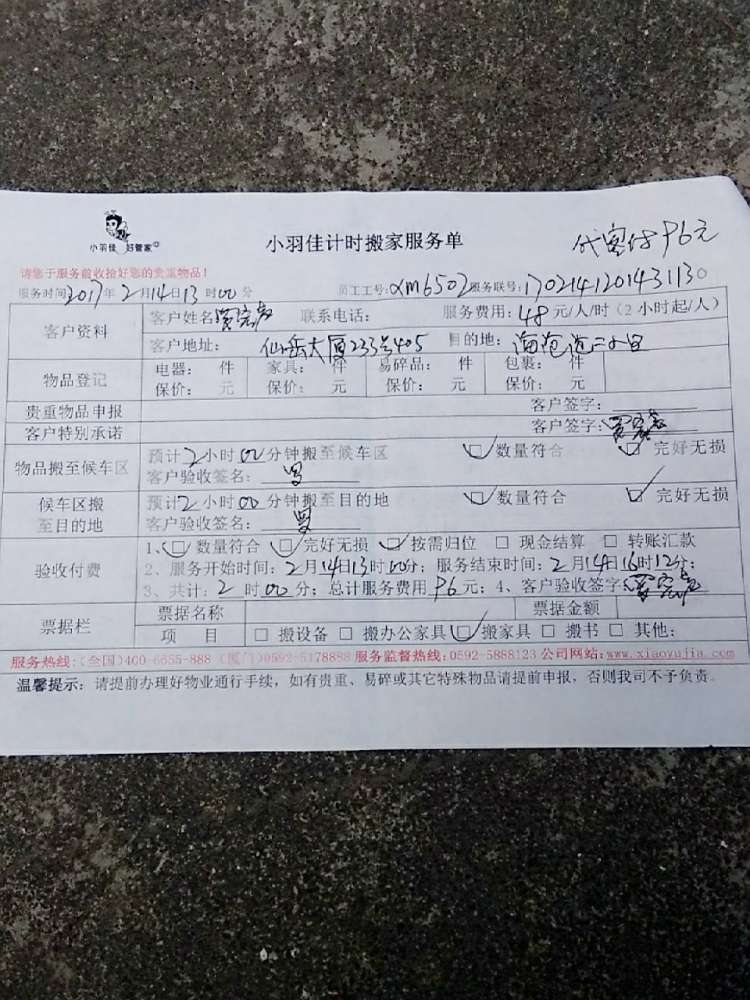 小羽佳 好管家
小羽佳计时搬家服务单
96元
请您于服务前收拾好您的贵重物品!
服务时间2017年2月14日13时00分 员工工号:xm6502服务联号:170214120143130
客户资料 客户姓名 联系电话: 服务费用:48元/人/时(2小时起/人)
客户地址: 仙岳大厦233号405 目的地:
物品登记 电器: 件 家具: 件 易碎品: 件 包裹: 件
保价: 元 保价: 元 保价: 元 保价: 元
贵重物品申报 客户签字:
客户特别承诺 客户签字:
物品搬至候车区 预计2小时00分钟搬至候车区 数量符合 完好无损
客户验收签名:
候车区搬至目的地 预计2小时00分钟搬至目的地 数量符合 完好无损
客户验收签名:
验收付费 1、数量符合 完好无损 按需归位 现金结算 转账汇款
2、服务开始时间:2月14日13时00分;服务结束时间:2月14日16时12分;
3、共计:2时00分;总计服务费用96元;4、客户验收签字
票据栏 票据名称 票据金额
项 目 搬设备 搬办公家具 搬家具 搬书 其他:
服务热线:(全国)400-6655-888 (厦门)0592-5178888 服务监督热线:0592-5888123 公司网站:www.xiaoyujia.com
温馨提示:请提前办理好物业通行手续,如有贵重、易碎或其它特殊物品请提前申报,否则我司不予负责。